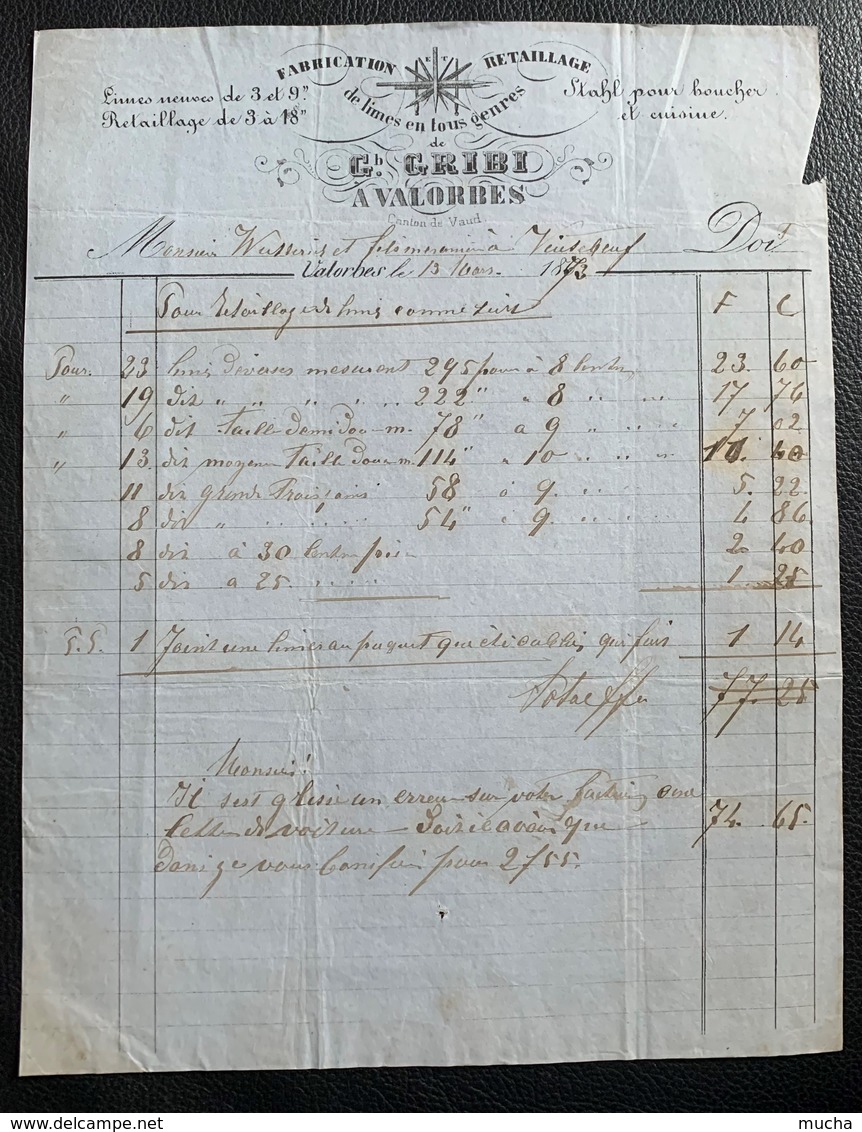 FABRICATION ET RETAILLAGE
de limes en tous genres
Limes neuves de 3 et 9"
Retaillage de 3 à 18"
Stahl pour boucher
et cuisine.
de
Gb. GRIBI
A VALORBES
Canton de Vaud
Monsieur et fils à Doit
Valorbes le 13 Mars 1873
Pour Retaillage de limes comme suit F C
Pour. 23 limes diverses mesurent 295 pour à 8 23. 60
" 19 dit " " " " " 222" " 8 " " 17 76
" 6 dit Taille demi douce m. 78" a 9 " " " 7 02
" 13. dit moyenne Taille douce m. 114" " 10 " " " 11. 40
11 dit grande 58 à 9. " " 5. 22
8 dit " " " " 54" " 9. " " 4 86
8 dit à 30 2. 40
5 dit a 25. " " " 1 25
1 Joint une au paquet qui fait 1 14
Total 77. 25
Monsieur!
Il s'est glissé un erreur sur votre
lettre de voiture 74. 65
vous pour 2755.
mucha